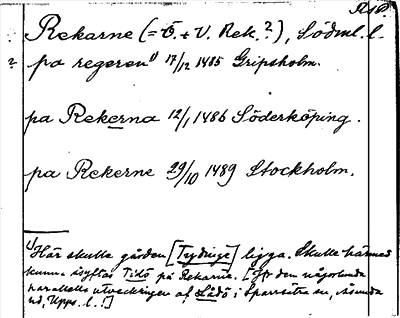 ASP.
Rekarne (= Ö. + V. Rek.?), Södml. l.
? pa regeren¹⁾ 17/12 1485 Gripsholm.
pa Rekerna 12/1 1486 Söderköping.
pa Rekerne 29/10 1489 Stockholm.
¹⁾ Här skulle gården [Tydinge] ligga. Skulle härmed
kunna åsyftas Tidö på Rekarne. [Jfr den någorlunda
parallella utvecklingen af Ladö i Sparrsätra sn, Åsunda
hd, Upps. l.!]